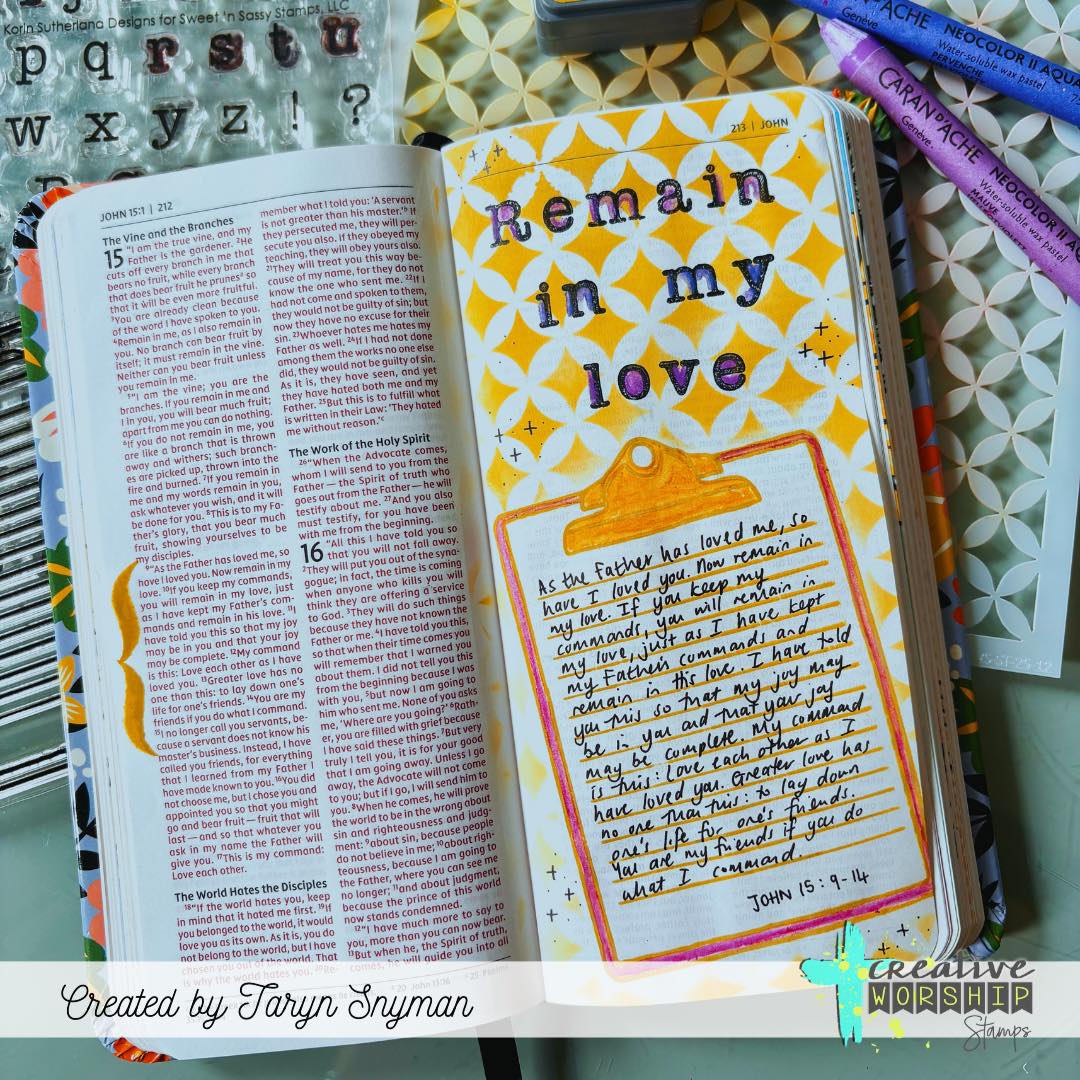 Korin Sutherland Designs for Sweet 'n Sassy Stamps, LLC
p q r s t u
w x y z ! ?
CARAN D'ACHE
Genève
NEOCOLOR II AQUA
Water-soluble wax pastel
PERVENCHE
CARAN D'ACHE
Genève
NEOCOLOR II A
Water-soluble wax pastel
MAUVE
JOHN 15:1 | 212
The Vine and the Branches
15 "I am the true vine, and my
Father is the gardener. 2He
cuts off every branch in me that
bears no fruit, while every branch
that does bear fruit he prunes a so
that it will be even more fruitful.
3You are already clean because
of the word I have spoken to you.
4Remain in me, as I also remain in
you. No branch can bear fruit by
itself; it must remain in the vine.
Neither can you bear fruit unless
you remain in me.
5"I am the vine; you are the
branches. If you remain in me and
I in you, you will bear much fruit;
apart from me you can do nothing.
6If you do not remain in me, you
are like a branch that is thrown
away and withers; such branch-
es are picked up, thrown into the
fire and burned. 7If you remain in
me and my words remain in you,
ask whatever you wish, and it will
be done for you. 8This is to my Fa-
ther's glory, that you bear much
fruit, showing yourselves to be
my disciples.
9"As the Father has loved me, so
have I loved you. Now remain in my
love. 10If you keep my commands,
you will remain in my love, just
as I have kept my Father's com-
mands and remain in his love. 11I
have told you this so that my joy
may be in you and that your joy
may be complete. 12My command
is this: Love each other as I have
loved you. 13Greater love has no
one than this: to lay down one's
life for one's friends. 14You are my
friends if you do what I command.
15I no longer call you servants, be-
cause a servant does not know his
master's business. Instead, I have
called you friends, for everything
that I learned from my Father I
have made known to you. 16You did
not choose me, but I chose you and
appointed you so that you might
go and bear fruit — fruit that will
last — and so that whatever you
ask in my name the Father will
give you. 17This is my command:
Love each other.
The World Hates the Disciples
18"If the world hates you, keep
in mind that it hated me first. 19If
you belonged to the world, it would
love you as its own. As it is, you do
not belong to the world, but I have
chosen you out of the world. That
is why the world hates you. 20Re-
member what I told you: 'A servant
is not greater than his master.' b If
they persecuted me, they will per-
secute you also. If they obeyed my
teaching, they will obey yours also.
21They will treat you this way be-
cause of my name, for they do not
know the one who sent me. 22If I
had not come and spoken to them,
they would not be guilty of sin; but
now they have no excuse for their
sin. 23Whoever hates me hates my
Father as well. 24If I had not done
among them the works no one else
did, they would not be guilty of sin.
As it is, they have seen, and yet
they have hated both me and my
Father. 25But this is to fulfill what
is written in their Law: 'They hated
me without reason.' c
The Work of the Holy Spirit
26"When the Advocate comes,
whom I will send to you from the
Father — the Spirit of truth who
goes out from the Father — he will
testify about me. 27And you also
must testify, for you have been
with me from the beginning.
16 "All this I have told you so
that you will not fall away.
2They will put you out of the syna-
gogue; in fact, the time is coming
when anyone who kills you will
think they are offering a service
to God. 3They will do such things
because they have not known the
Father or me. 4I have told you this,
so that when their time comes you
will remember that I warned you
about them. I did not tell you this
from the beginning because I was
with you, 5but now I am going to
him who sent me. None of you asks
me, 'Where are you going?' 6Rath-
er, you are filled with grief because
I have said these things. 7But very
truly I tell you, it is for your good
that I am going away. Unless I go
away, the Advocate will not come
to you; but if I go, I will send him to
you. 8When he comes, he will prove
the world to be in the wrong about
sin and righteousness and judg-
ment: 9about sin, because people
do not believe in me; 10about righ-
teousness, because I am going to
the Father, where you can see me
no longer; 11and about judgment,
because the prince of this world
now stands condemned.
12"I have much more to say to
you, more than you can now bear.
13But when he, the Spirit of truth,
comes, he will guide you into all
b 20 John 13:16
213 | JOHN
Remain
in my
love
As the Father has loved me, so
have I loved you. Now remain in
my love. If you keep my
commands, you will remain in
my love, just as I have kept
my Father's commands and
remain in this love. I have told
you this so that my joy may
be in you and that your joy
may be complete. My command
is this: Love each other as I
have loved you. Greater love has
no one than this: to lay down
one's life for one's friends.
You are my friends if you do
what I command.
JOHN 15:9-14
Created by Taryn Snyman
creative
WORSHIP
Stamps